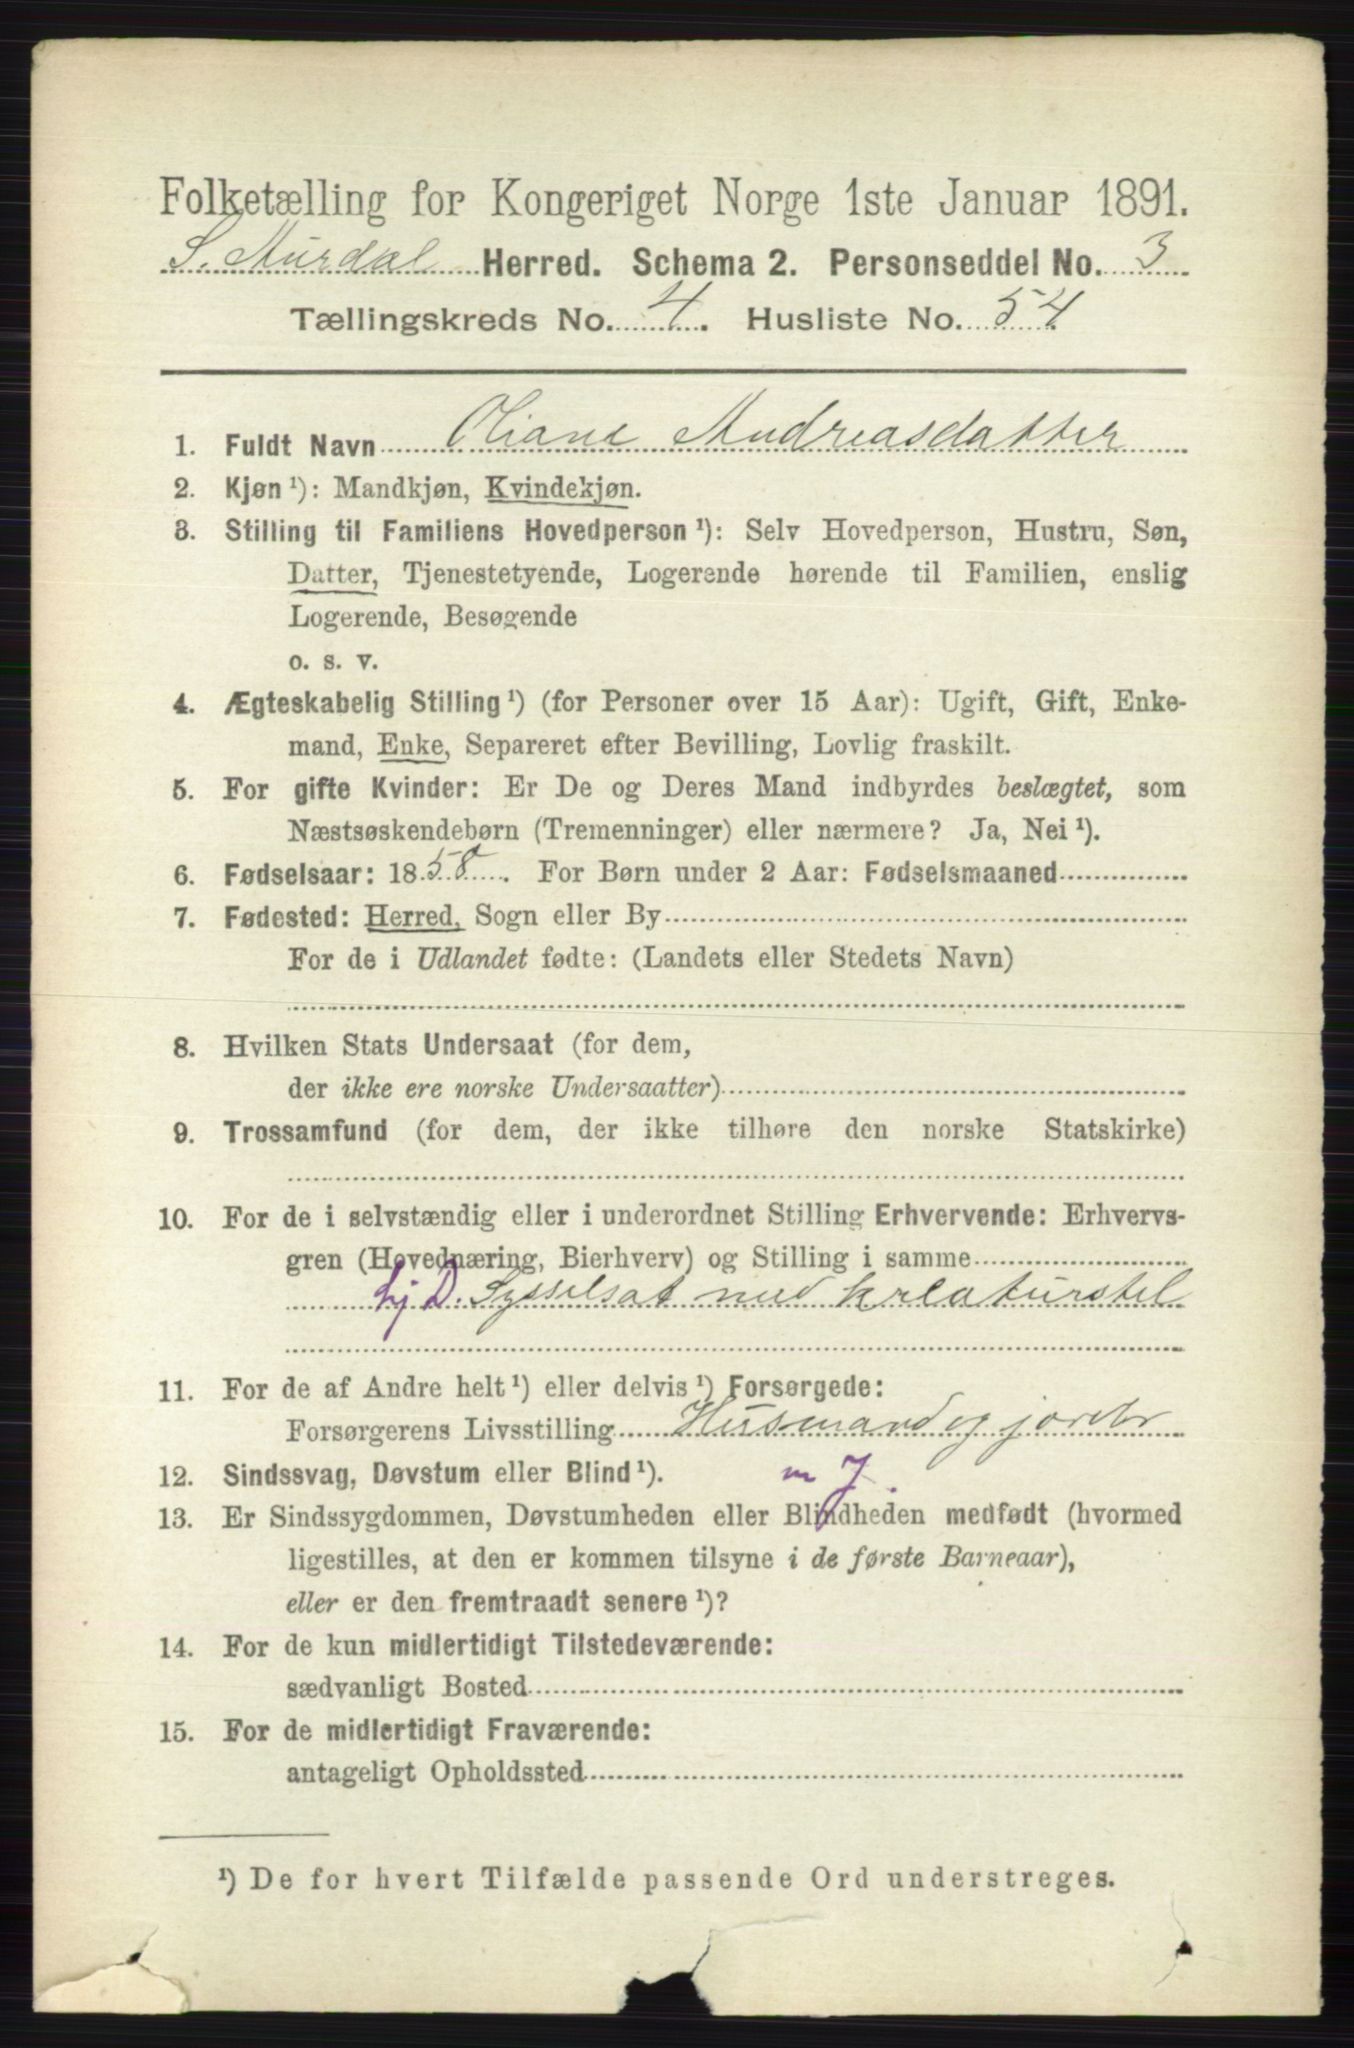 Folketælling for Kongeriget Norge 1ste Januar 1891.
S. Aurdal Herred. Schema 2. Personseddel No. 3
Tællingskreds No. 4. Husliste No. 54
1. Fuldt Navn Oliane Andreasdatter
2. Kjøn ¹): Mandkjøn, Kvindekjøn.
3. Stilling til Familiens Hovedperson ¹): Selv Hovedperson, Hustru, Søn,
Datter, Tjenestetyende, Logerende hørende til Familien, enslig
Logerende, Besøgende
o. s. v.
4. Ægteskabelig Stilling ¹) (for Personer over 15 Aar): Ugift, Gift, Enke-
mand, Enke, Separeret efter Bevilling, Lovlig fraskilt.
5. For gifte Kvinder: Er De og Deres Mand indbyrdes beslægtet, som
Næstsøskendebørn (Tremenninger) eller nærmere? Ja, Nei ¹).
6. Fødselsaar: 1858. For Børn under 2 Aar: Fødselsmaaned
7. Fødested: Herred, Sogn eller By
For de i Udlandet fødte: (Landets eller Stedets Navn)
8. Hvilken Stats Undersaat (for dem,
der ikke ere norske Undersaatter)
9. Trossamfund (for dem, der ikke tilhøre den norske Statskirke)
10. For de i selvstændig eller i underordnet Stilling Erhvervende: Erhvervs-
gren (Hovednæring, Bierhverv) og Stilling i samme
hj D. Sysselsat med kreaturstel
11. For de af Andre helt ¹) eller delvis ¹) Forsørgede:
Forsørgerens Livsstilling Husmand og jordbr
12. Sindssvag, Døvstum eller Blind ¹). m J.
13. Er Sindssygdommen, Døvstumheden eller Blindheden medfødt (hvormed
ligestilles, at den er kommen tilsyne i de første Barneaar),
eller er den fremtraadt senere ¹)?
14. For de kun midlertidigt Tilstedeværende:
sædvanligt Bosted
15. For de midlertidigt Fraværende:
antageligt Opholdssted
¹) De for hvert Tilfælde passende Ord understreges.